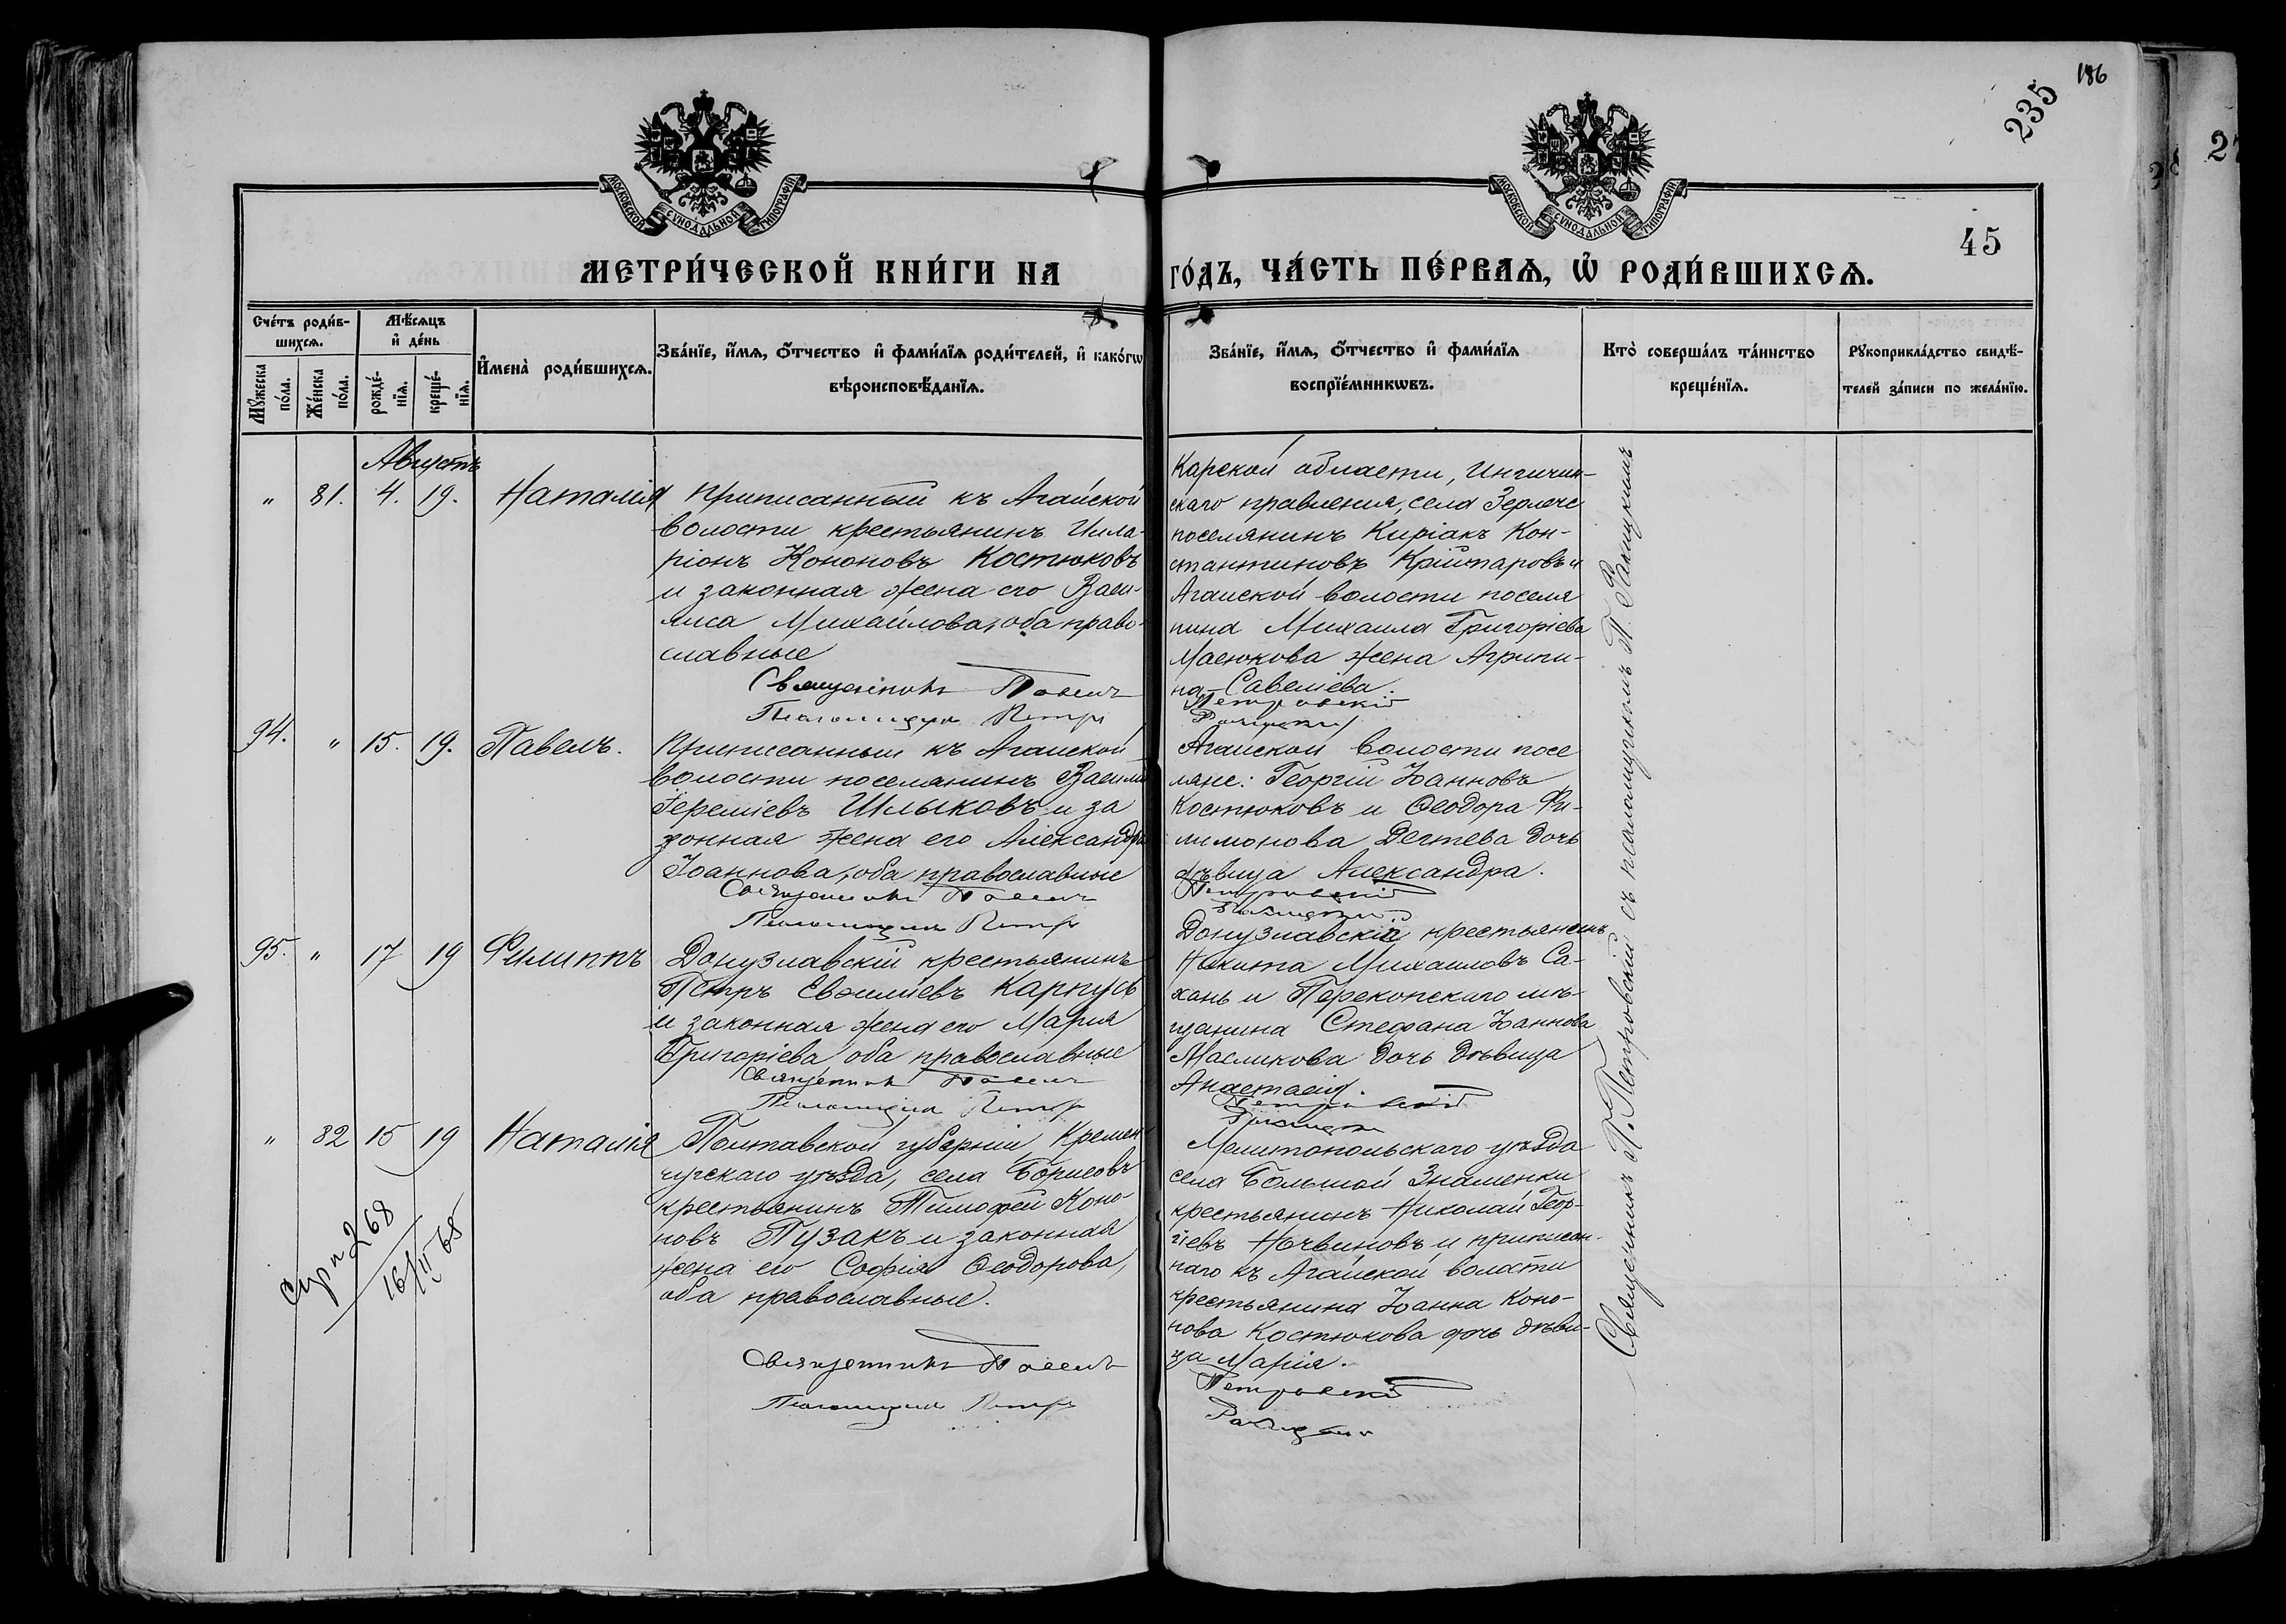 186
235
45
МОСКОВСКОЙ СУНОДАЛЬНОЙ ТИПОГРАФІИ
МОСКОВСКОЙ СУНОДАЛЬНОЙ ТИПОГРАФІИ
МЕТРИ́ЧЕСКОЙ КНИ́ГИ НА
ГО́ДЪ, ЧА́СТЬ ПЕ́РВАѦ, Ѡ҆ РОДИ́ВШИХСѦ.
Сче́тъ роди́в-
шихсѧ.
Мꙋ́жеска
по́ла.
Же́нска
по́ла.
Мѣ́сѧцъ
и҆ де́нь
рожде́-
нїѧ.
креще́-
нїѧ.
И҆мена̀ роди́вшихсѧ.
Зва́нїе, и҆́мѧ, ѻ҆́тчество и҆ фами́лїѧ роди́телей, и҆ како́гѡ
вѣроисповѣ́данїѧ.
Зва́нїе, и҆́мѧ, ѻ҆́тчество и҆ фами́лїѧ
воспрїе́мникѡвъ.
Кто̀ соверша́лъ та́инство
креще́нїѧ.
Рꙋкоприкла́дство свидѣ́-
телей за́писи по жела́нїю.
Августъ
" 81. 4. 19. Наталія
Приписанный къ Агайской
волости крестьянинъ Илла-
ріонъ Кононовъ Костюковъ
и законная жена его Васи-
лиса Михайлова, оба право-
славные
Священникъ Павелъ
Псаломщикъ Петръ
Карской области,
скаго правленія, села
поселянинъ Киріакъ Кон-
стантиновъ и
Агайской волости поселя
нина Михаила Григоріева
Масюкова жена Агрипи-
на Савеліева.
Петровскій
94. " 15. 19. Павелъ.
Приписанный къ Агайской
волости поселянинъ Василій
Іереміевъ Шлыковъ и за
конная жена его Александра
Іоаннова, оба православные
Священникъ Павелъ
Псаломщикъ Петръ
Агайской волости посе
ляне: Георгій Іоанновъ
Костюковъ и Ѳеодора Фи-
лимонова Дегтева дочь
дѣвица Александра.
Петровскій
95. " 17 19 Филиппъ
Донузлавскій крестьянинъ
Петръ Карпусь
и законная жена его Марія
Григоріева оба православные
Священникъ Павелъ
Псаломщикъ Петръ
Донузлавскій крестьянинъ
Никита Михаиловъ Са-
хань и Перекопскаго мѣ-
щанина Стефана Іоаннова
Масликова дочь дѣвица
Анастасія.
Петровскій
" 82 15 19 Наталія
Полтавской губерніи, Кремен
чугскаго уѣзда, села Борисовъ
крестьянинъ Тимофей Коно-
новъ Пузакъ и законная
жена его Софія Ѳеодорова,
оба православные.
Священникъ Павелъ
Псаломщикъ Петръ
Мелитопольскаго уѣзда
села Большой Знаменки
крестьянинъ Николай Геор-
гіевъ и приписан-
наго къ Агайской волости
крестьянина Іоанна Коно-
нова Костюкова дочь дѣви-
ца Марія.
Петровскій
268
16/II 68
Священникъ П. Петровскій съ псаломщикомъ П.